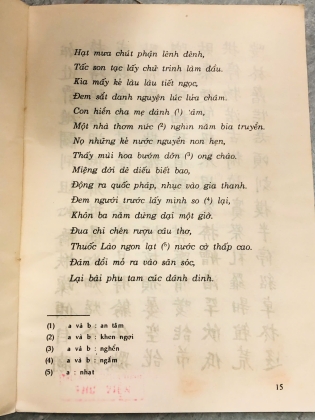 Hạt mưa chút phận lênh đênh,
Tấc son tạc lấy chữ trinh làm đầu.
Kìa mấy kẻ lâu lâu tiết ngọc,
Đem sắt danh nguyện lúc lửa chăm.
Con hiền cha mẹ đành (1) tâm,
Một nhà thơm nức (2) nghìn năm bia truyền.
Nọ những kẻ nước nguyền non hẹn,
Thấy mùi hoa bướm dỡn (3) ong chào.
Miệng đời dê diếu biết bao,
Động ra quốc pháp, nhục vào gia thanh.
Đem người trước lấy mình so (4) lại,
Khôn ba năm đừng dại một giờ.
Đua chi chén rượu câu thơ,
Thuốc Lào ngon lạt (5) nước cờ thấp cao.
Đám đổi mỏ ra vào săn sóc,
Lại bài phu tam cúc đánh đinh.
(1) a và b : an tâm
(2) a và b : khen ngợi
(3) a và b : nghển
(4) a và b : ngắm
(5) a : nhạt
15